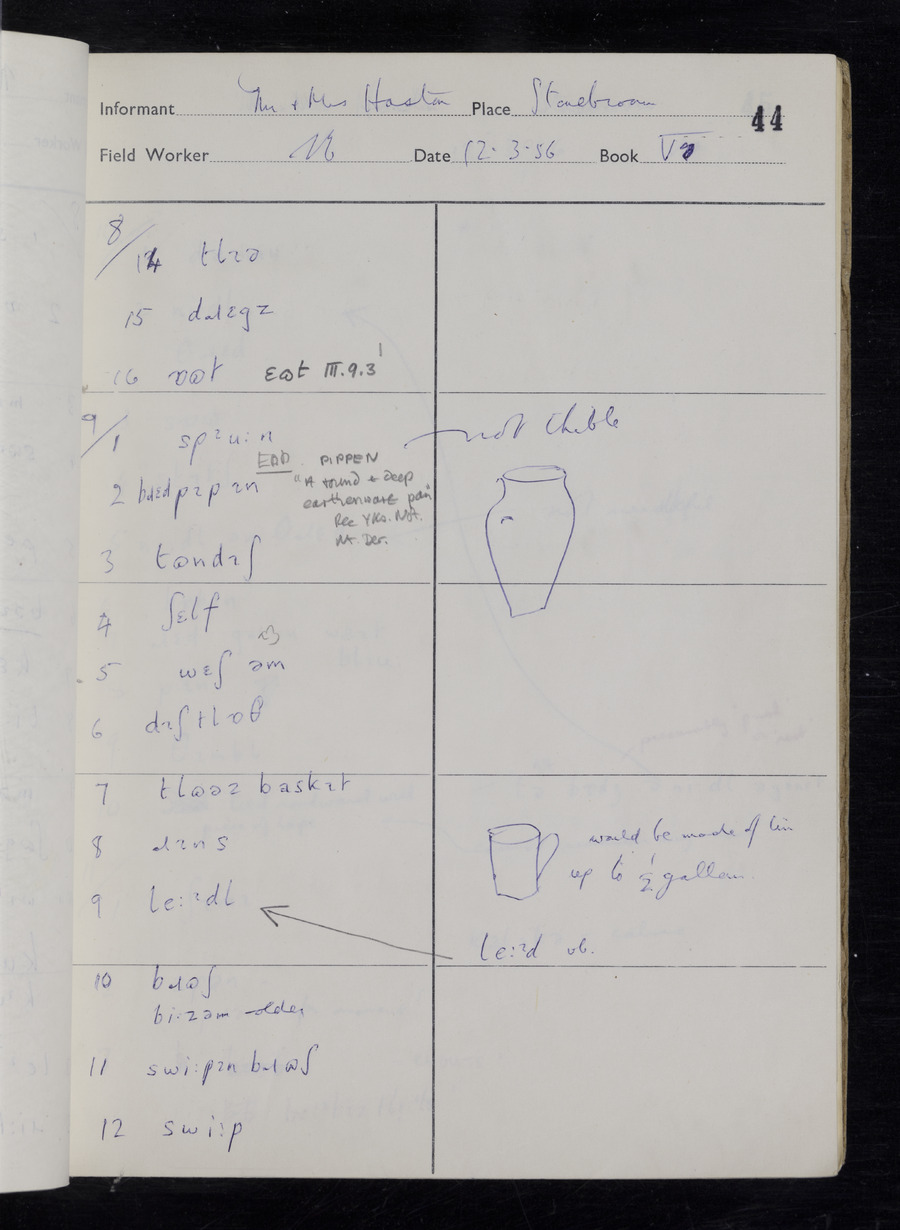 Informant Mr + Mrs Haston Place Stonebroom 44
Field Worker Date 12. 3. 56 Book V
8/14
15
16 ɛɷt III.9.3
9/1 not thible
EDD PIPPEN
2 bɹɛdpɪpɪn "A round & deep
earthenware pan"
Rec Yks. Not.
Nt. Der.
3 tɷndɪʃ
4 ʃɛlf
5 wɛʃ əm
6 dɪʃtlɒθ
7 tlɷəz baskɪt
8 would be made of tin
up to ½ gallon.
9 le:ᵊdl
le:ᵊd vb.
10 bɹɷʃ
bi:zəm older
11 swi:pɪn bɹɷʃ
12 swi:p